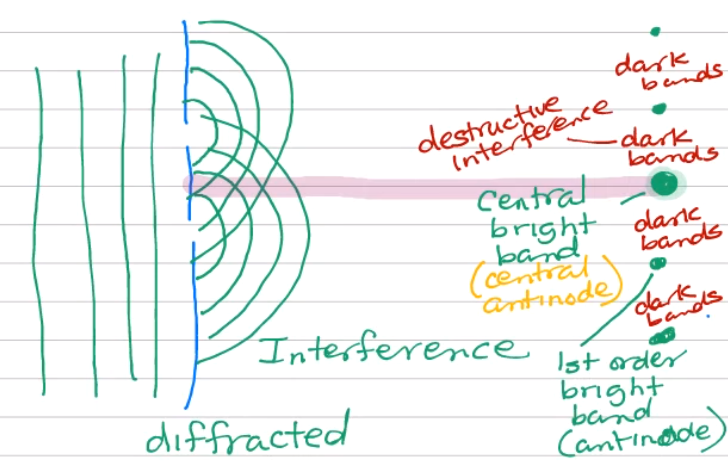 dark
bands
destructive
interference
dark
bands
Central
bright
band
(central
antinode)
dark
bands
dark
bands
Interference
1st order
bright
band
(antinode)
diffracted